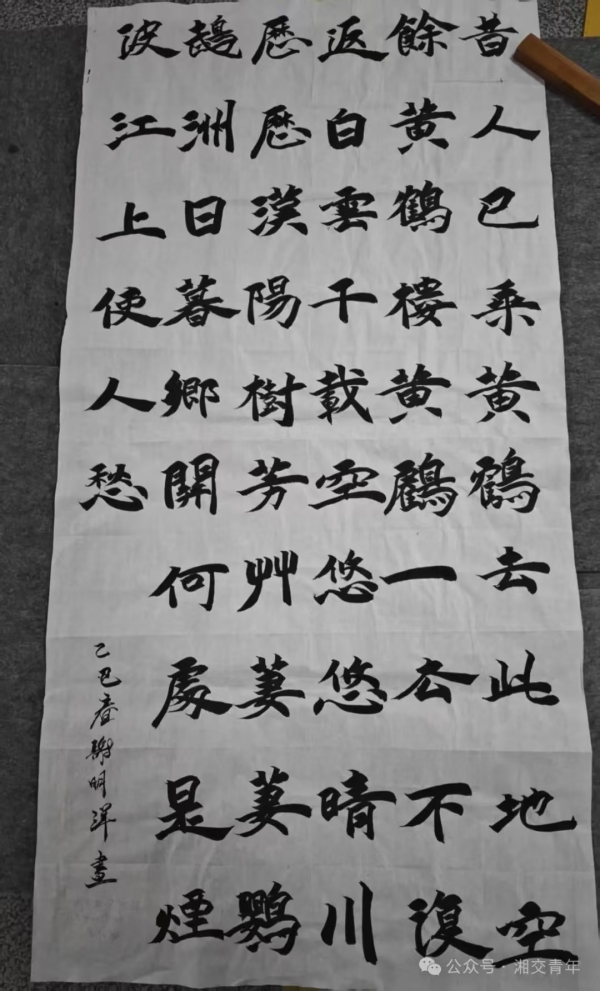 昔人已乘黄鶴去此地空
餘黄鶴樓黄鶴一去不復
返白雲千載空悠悠晴川
歷歷漢陽樹芳艸萋萋鸚
鵡洲日暮鄉關何處是煙
波江上使人愁
乙巳春謝明書
公众号·湘交青年